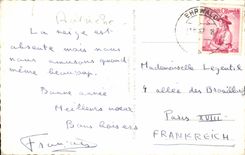 La neige est
absente mais nous
nous amusons quand
même beaucoup.
Bonne année
Meilleurs vœux
Bons baisers
Françoise
Mademoiselle Legentil
4 allée des
Paris XVIII
FRANKREICH